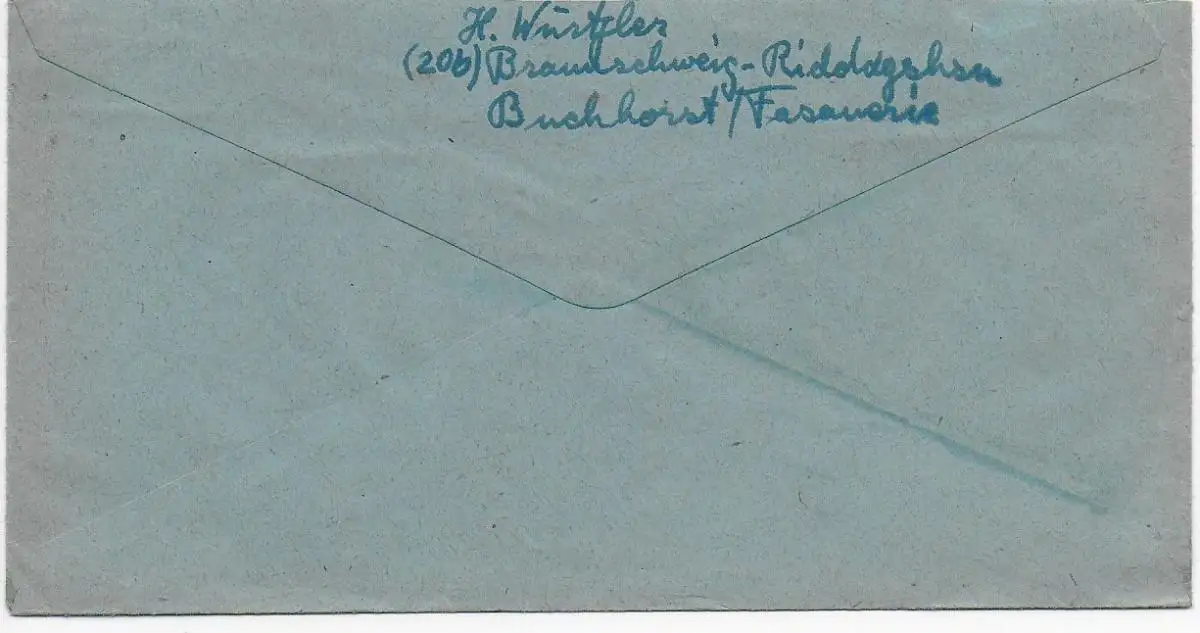 H. Würtzler
(20b) Braunschweig-Riddagshsn
Buchhorst/Fasanerie